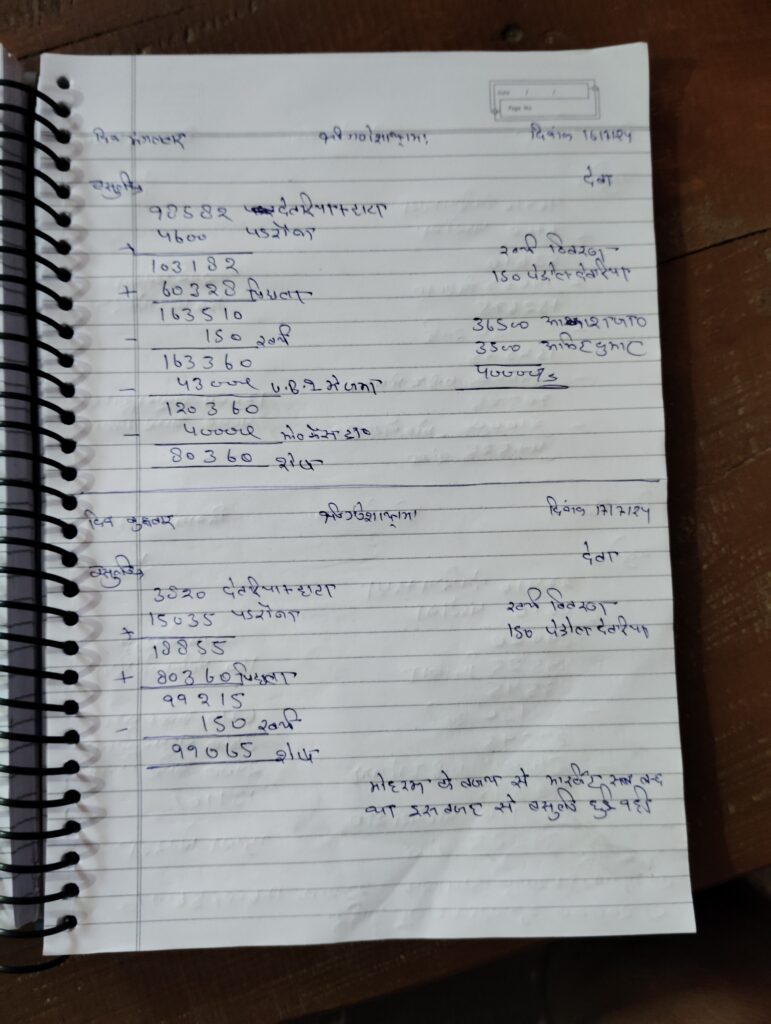 Date / /
Page No.
दिन मंगलवार श्री गणेशाय नमः दिनांक 16/7/24
वसुली देना
98582 देवरिया + हाटा
4600 पडरौना
+ 103182 खर्च विवरण
+ 60328 पिछला 150 पेट्रोल देवरिया
163510
- 150 खर्च 36500
163360 3500
- 43000 U.B.I भेजना 40000
120360
- 40000
80360 शेष
दिन बुधवार श्री गणेशाय नमः दिनांक 17/7/24
वसुली देना
3820 देवरिया + हाटा
15035 पडरौना खर्च विवरण
+ 18855 150 पेट्रोल देवरिया
+ 80360 पिछला
99215
- 150 खर्च
99065 शेष
मोहरम के वजह से मारकेट सब बन्द
था इस वजह से वसुली हुई नही